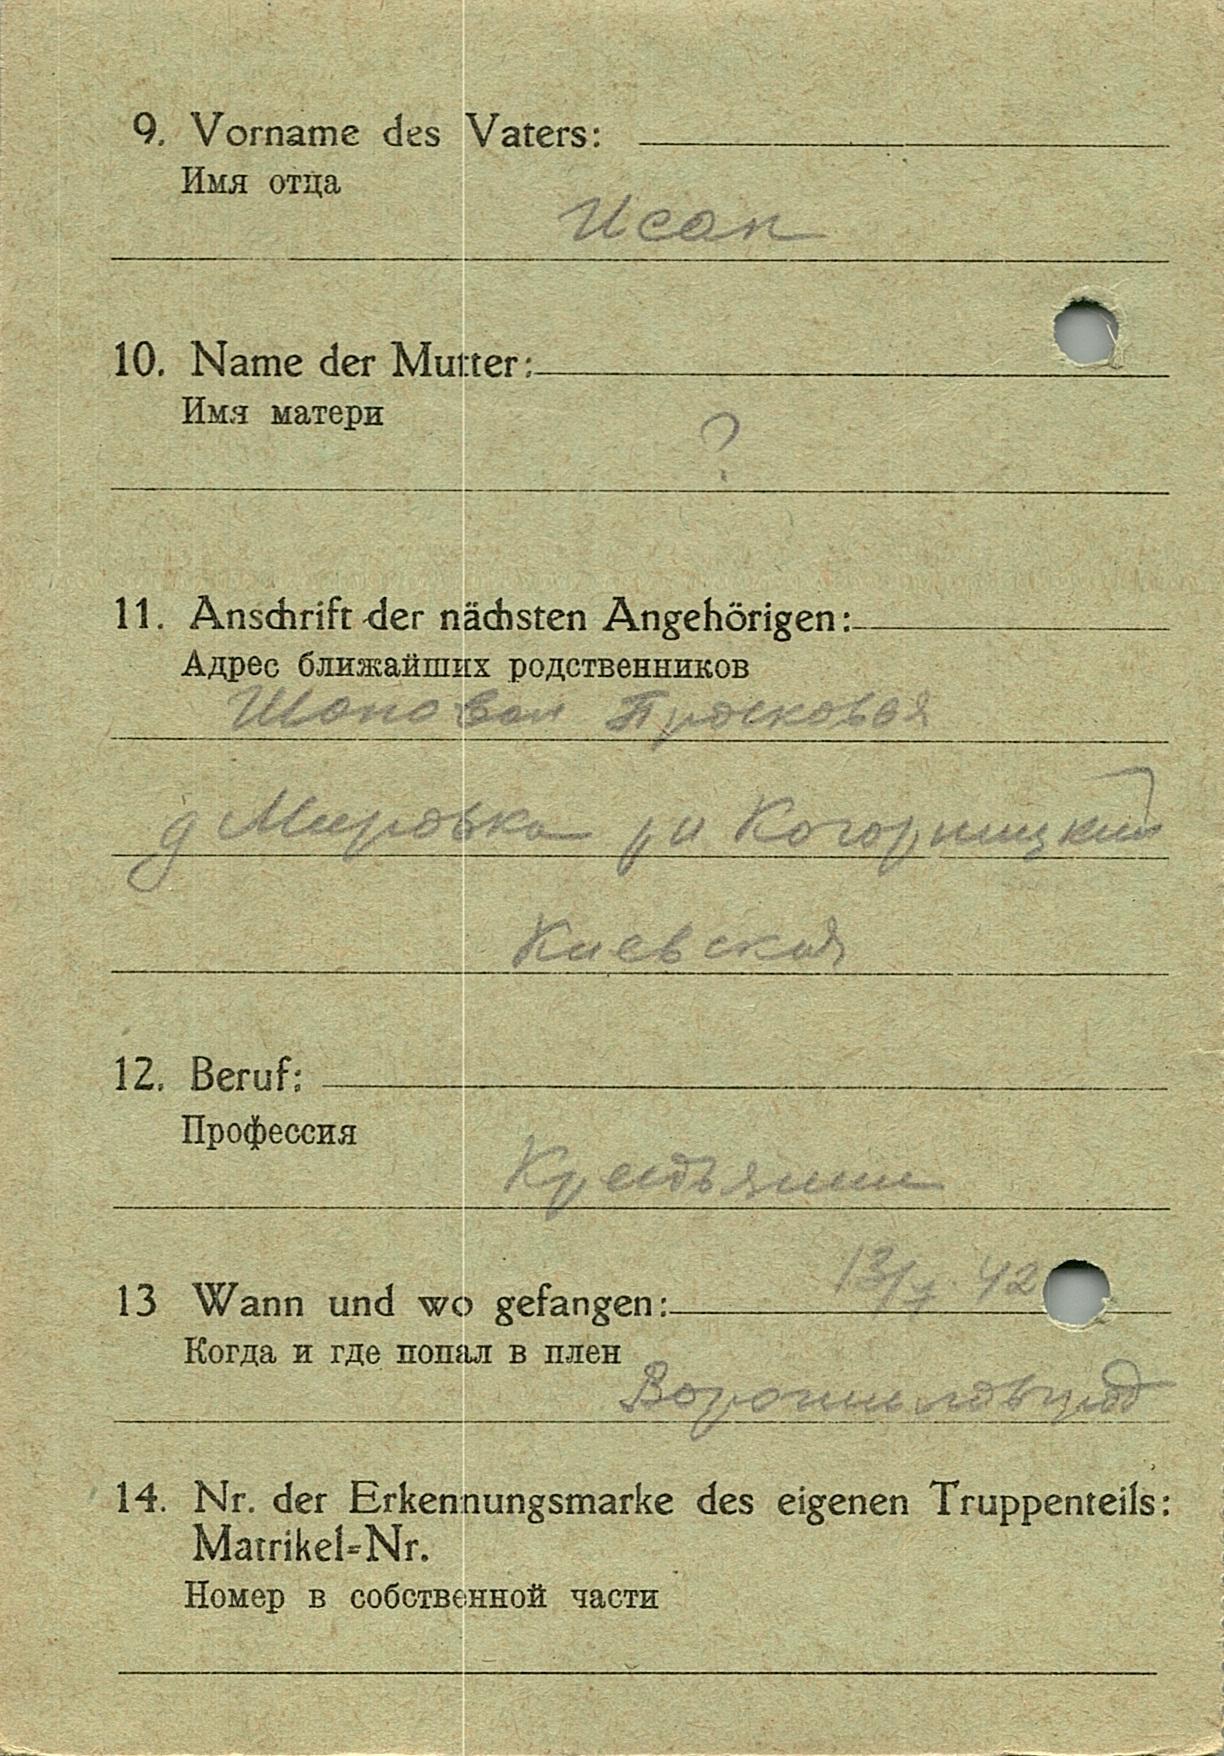 9. Vorname des Vaters:
Имя отца
Исак
10. Name der Mutter:
Имя матери
?
11. Anschrift der nächsten Angehörigen:
Адрес ближайших родственников
Шаповал Прасковья
д Мировка рн Когорлицкий
Киевская
12. Beruf:
Профессия
Крестьянин
13/7. 42
13 Wann und wo gefangen:
Когда и где попал в плен
Ворошиловград
14. Nr. der Erkennungsmarke des eigenen Truppenteils:
Matrikel-Nr.
Номер в собственной части